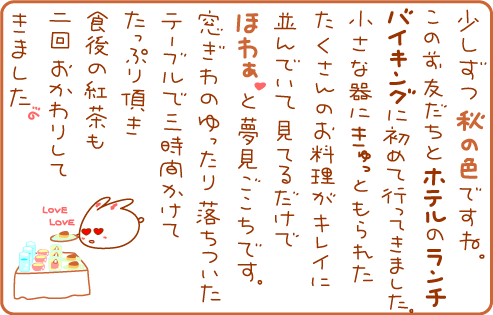 少しずつ 秋の色ですね。
この前、友だちとホテルのランチ
バイキングに初めて行ってきました。
小さな器にきゅっともられた
たくさんのお料理がキレイに
並んでいて 見てるだけで
ほわぁ♥と夢見ごこちです。
窓ぎわのゆったり落ちついた
テーブルで三時間かけて
たっぷり頂き
食後の紅茶も
二回 おかわりして
きました
LOVE
LOVE